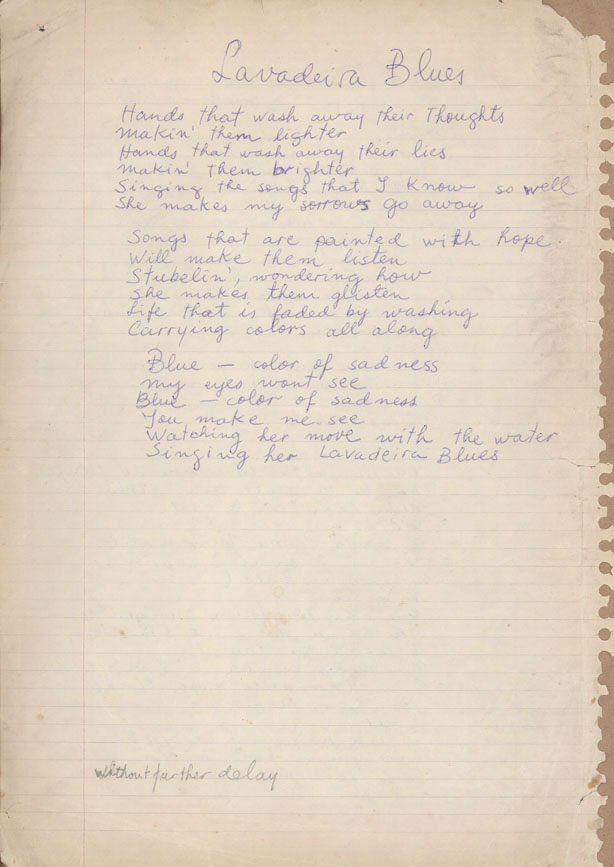 Lavadeira Blues
Hands that wash away their Thoughts
Makin' them lighter
Hands that wash away their lies
Makin' Them brighter
Singing the songs that I know so well
She makes my sorrows go away
Songs that are painted with hope.
Will make them listen
Stubelin', wondering how
She makes them glisten
Life that is faded by washing
Carrying colors all along
Blue — color of sadness
My eyes wont see
Blue — color of sadness
You make me see
Watching her move with the water
Singing her Lavadeira Blues
without further delay